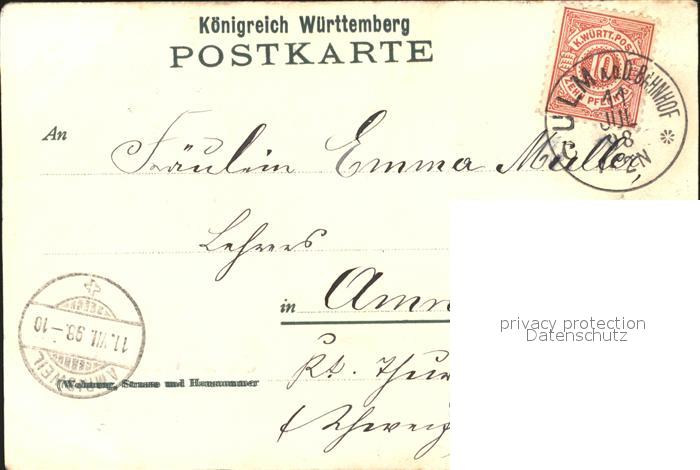 Königreich Württemberg
POSTKARTE
K. WÜRTT. POST
10
ZEHN PFENNIG
ULM A.D.D. BAHNHOF
11
JUL
98
An
Fräulein Emma Müller,
Lehrers
in Amr
Kt. Thur
(Schweiz
(Wohnung, Strasse und Hausnummer
AMRISWEIL
11.VII.98.-10
privacy protection
Datenschutz